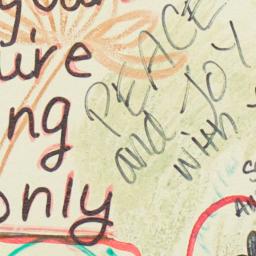 ure
ng
only
PEACE
and JOY
with